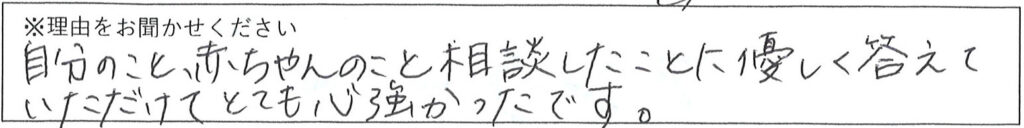 ※理由をお聞かせください
自分のこと、赤ちゃんのこと相談したことに優しく答えて
いただけてとても心強かったです。